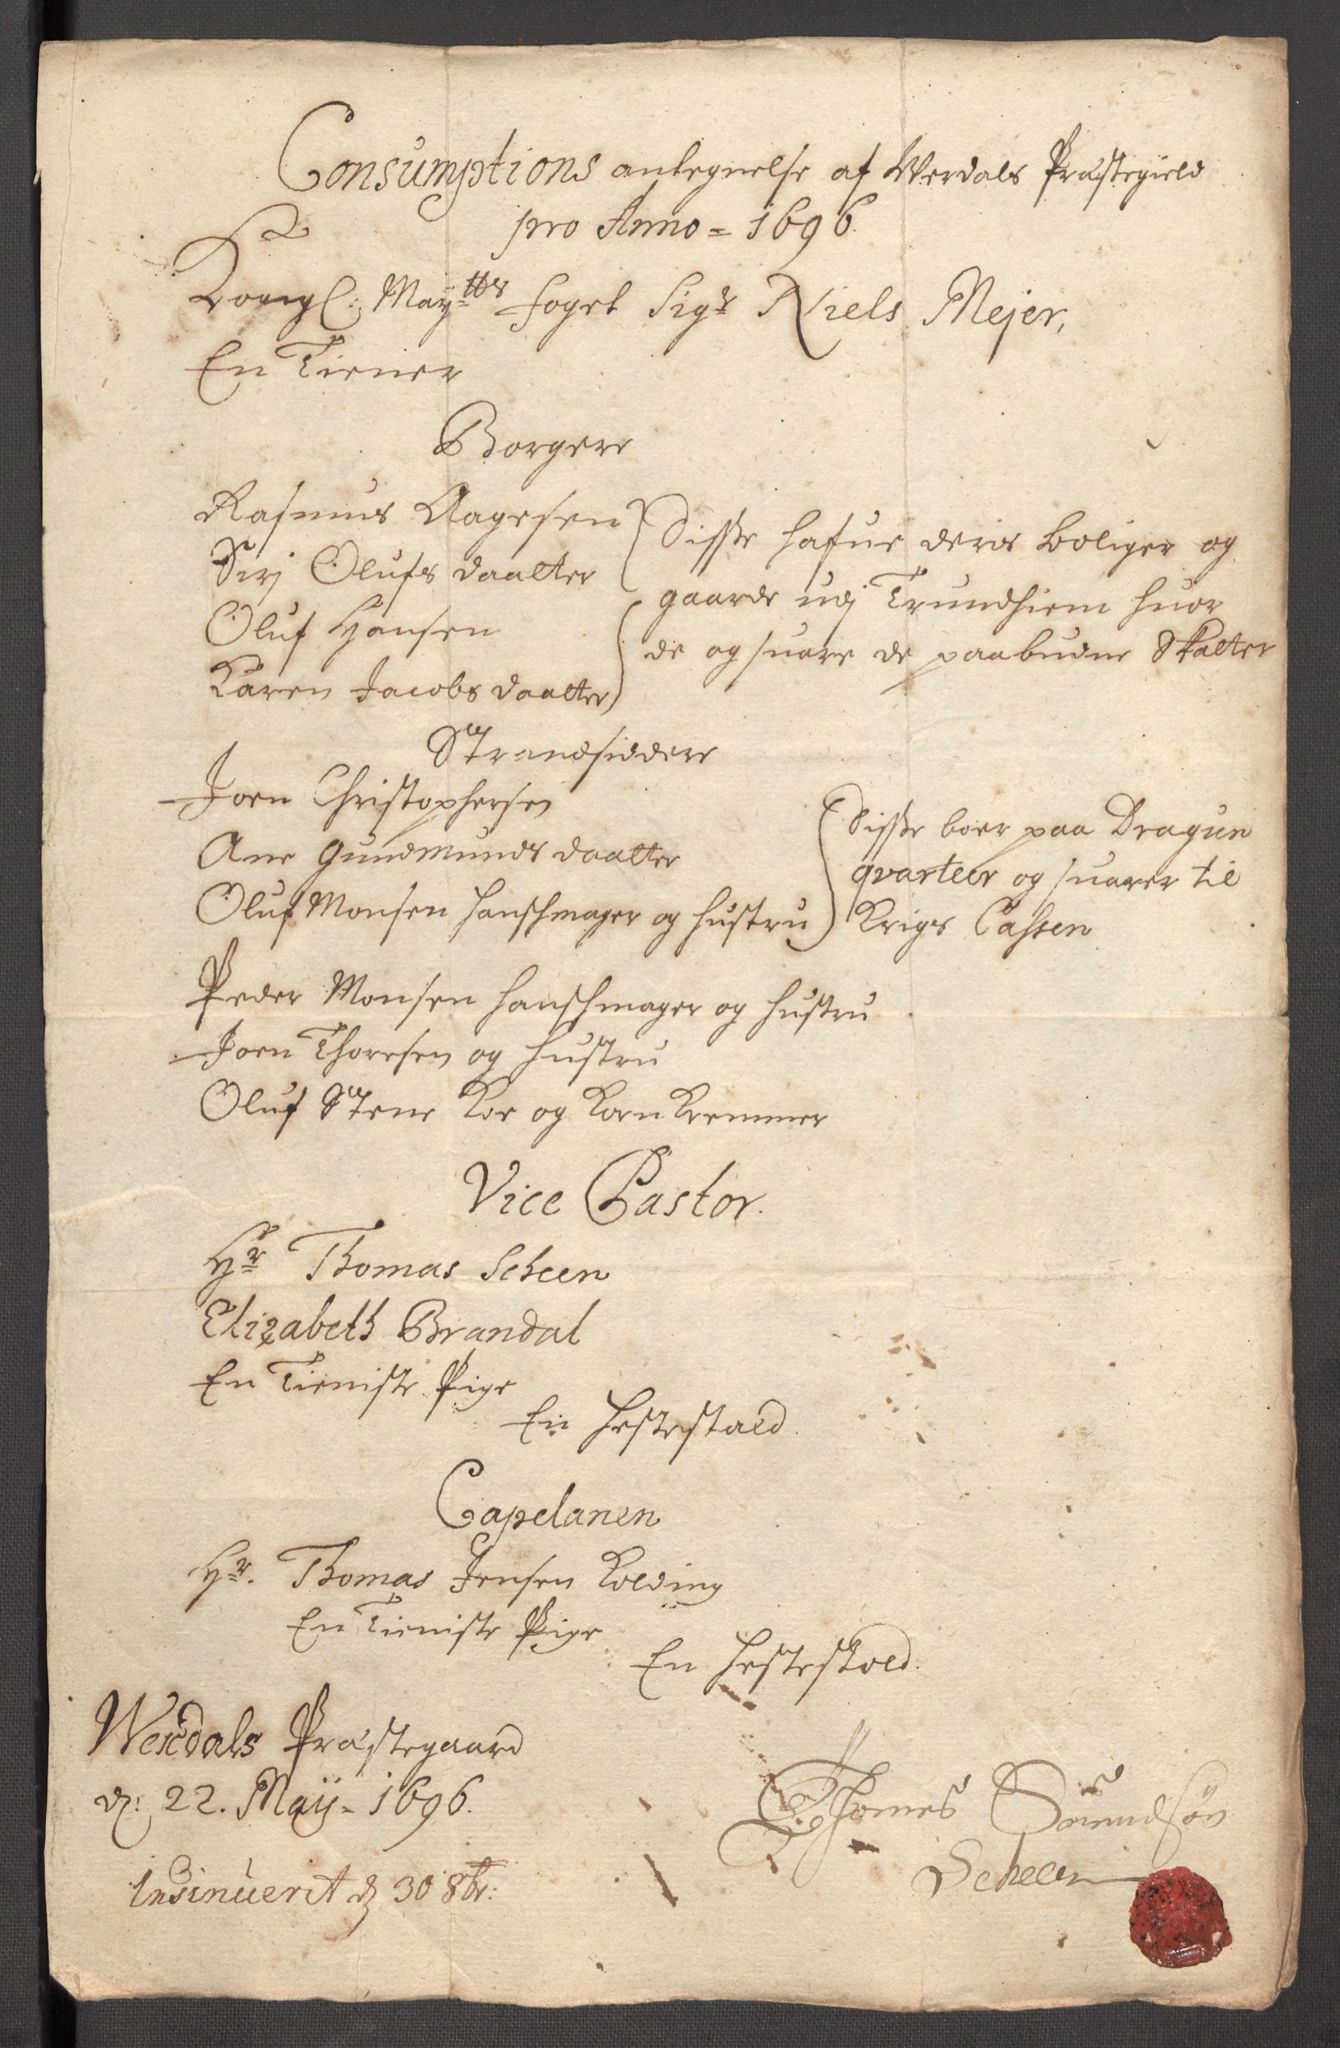 Consumptions antegnelse af Werdals Præstegield
pro Anno = 1696.
Kongl: Mayttes foget Sigr Niels Mejer,
En Tiener
Borgere
Rasmus Aagesen
Sirj Olufs daatter
Oluf Hansen
Karen Jacobs daatter
Disse hafue deris boliger og
gaarde udj Trundhiem huor
de og suare de paabudne Skatter
Strandsiddere
Joen Christophersen
Ane Gundmunds daatter
Oluf Monsen Hanschmager og hustru
Disse boer paa Dragun
qvarteer og suarer til
Krigs Cassen
Peder Monsen Hanschmager og hustru
Joen Thoresen og hustru
Oluf Stene Koe og Korn Kremmer
Vice Pastor.
Hr Thomas Scheen
Elizabeth Brandal
En Tieniste Pige
En Hestestald.
Capelanen
Hr. Thomas Jensen Kolding
En Tieniste Pige
En Hestestald.
Werdals Præstegaard
d: 22. Maÿ - 1696.
Thomes
Scheen
Insinuerit d 30 8br: